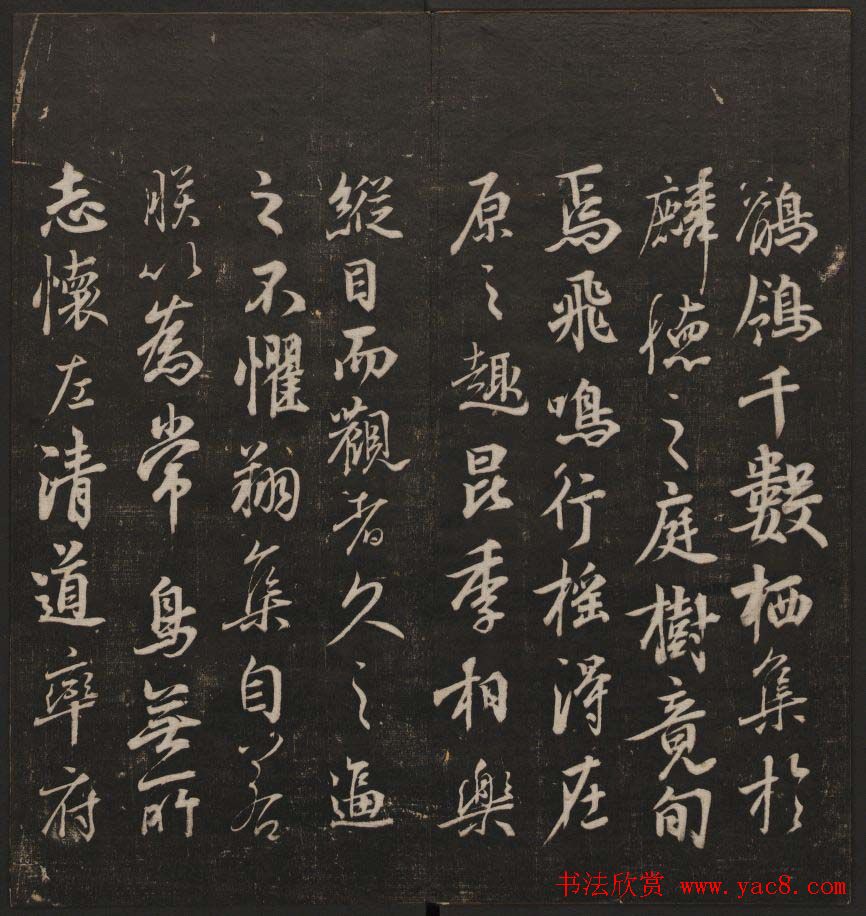 鶺鴒千數栖集於
麟德之庭樹竟旬
焉飛鳴行搖得在
原之趣昆季相樂
縱目而觀者久之逼
之不懼翔集自若
朕以為常鳥無所
志懷左清道率府
书法欣赏 www.yac8.com